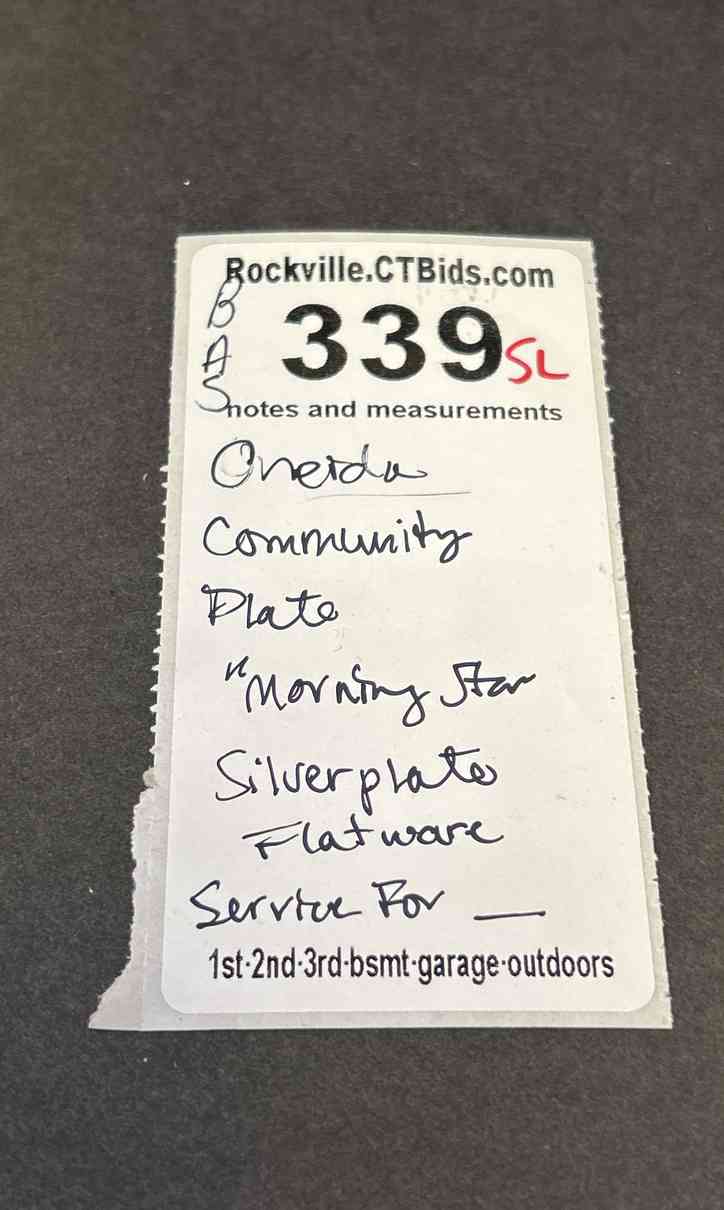 Rockville.CTBids.com
BAS
339 SL
notes and measurements
Oneida
Community
Plate
"Morning Star
Silverplate
Flatware
Service For __
1st·2nd·3rd·bsmt·garage·outdoors